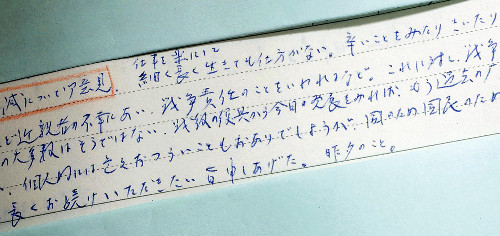 減について御意見
仕事を楽にして
細く長く生きても仕方がない。辛いことをみたりきいたり
ど近親者の不幸にあい、戦争責任のことをいわれるなど。これに対し、戦争
の大多数はそうではない。戦後の復興から今日の発展をみれば、もう過去の
。個人的には色々おつらいこともおありでしょうが、国のため国民のため
長くお続けいただきたい旨申しあげた。昨夕のこと。